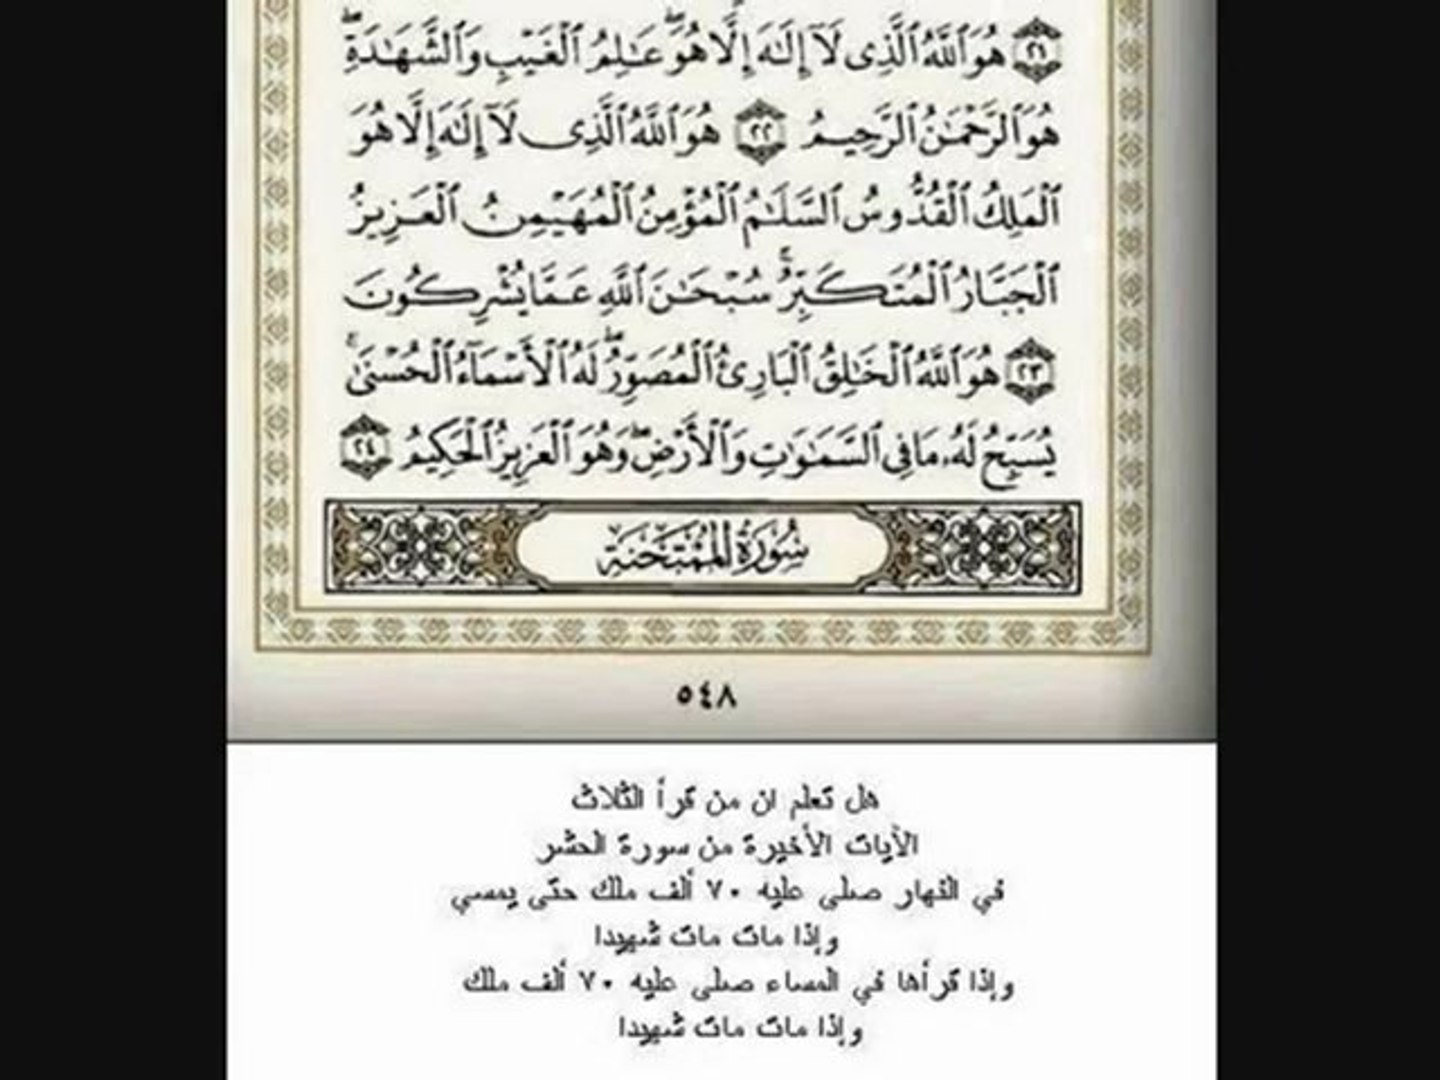 ٢١ هُوَ ٱللَّهُ ٱلَّذِى لَآ إِلَٰهَ إِلَّا هُوَ ۖ عَٰلِمُ ٱلْغَيْبِ وَٱلشَّهَٰدَةِ ۖ
هُوَ ٱلرَّحْمَٰنُ ٱلرَّحِيمُ ٢٢ هُوَ ٱللَّهُ ٱلَّذِى لَآ إِلَٰهَ إِلَّا هُوَ
ٱلْمَلِكُ ٱلْقُدُّوسُ ٱلسَّلَٰمُ ٱلْمُؤْمِنُ ٱلْمُهَيْمِنُ ٱلْعَزِيزُ
ٱلْجَبَّارُ ٱلْمُتَكَبِّرُ ۚ سُبْحَٰنَ ٱللَّهِ عَمَّا يُشْرِكُونَ
٢٣ هُوَ ٱللَّهُ ٱلْخَٰلِقُ ٱلْبَارِئُ ٱلْمُصَوِّرُ ۖ لَهُ ٱلْأَسْمَآءُ ٱلْحُسْنَىٰ ۚ
يُسَبِّحُ لَهُۥ مَا فِى ٱلسَّمَٰوَٰتِ وَٱلْأَرْضِ ۖ وَهُوَ ٱلْعَزِيزُ ٱلْحَكِيمُ ٢٤
سُورَةُ المُمْتَحَنَةِ
٥٤٨
هل تعلم ان من قرأ الثلاث
الآيات الأخيرة من سورة الحشر
في النهار صلى عليه ٧٠ ألف ملك حتى يمسي
وإذا مات مات شهيدا
وإذا قرأها في المساء صلى عليه ٧٠ ألف ملك
وإذا مات مات شهيدا